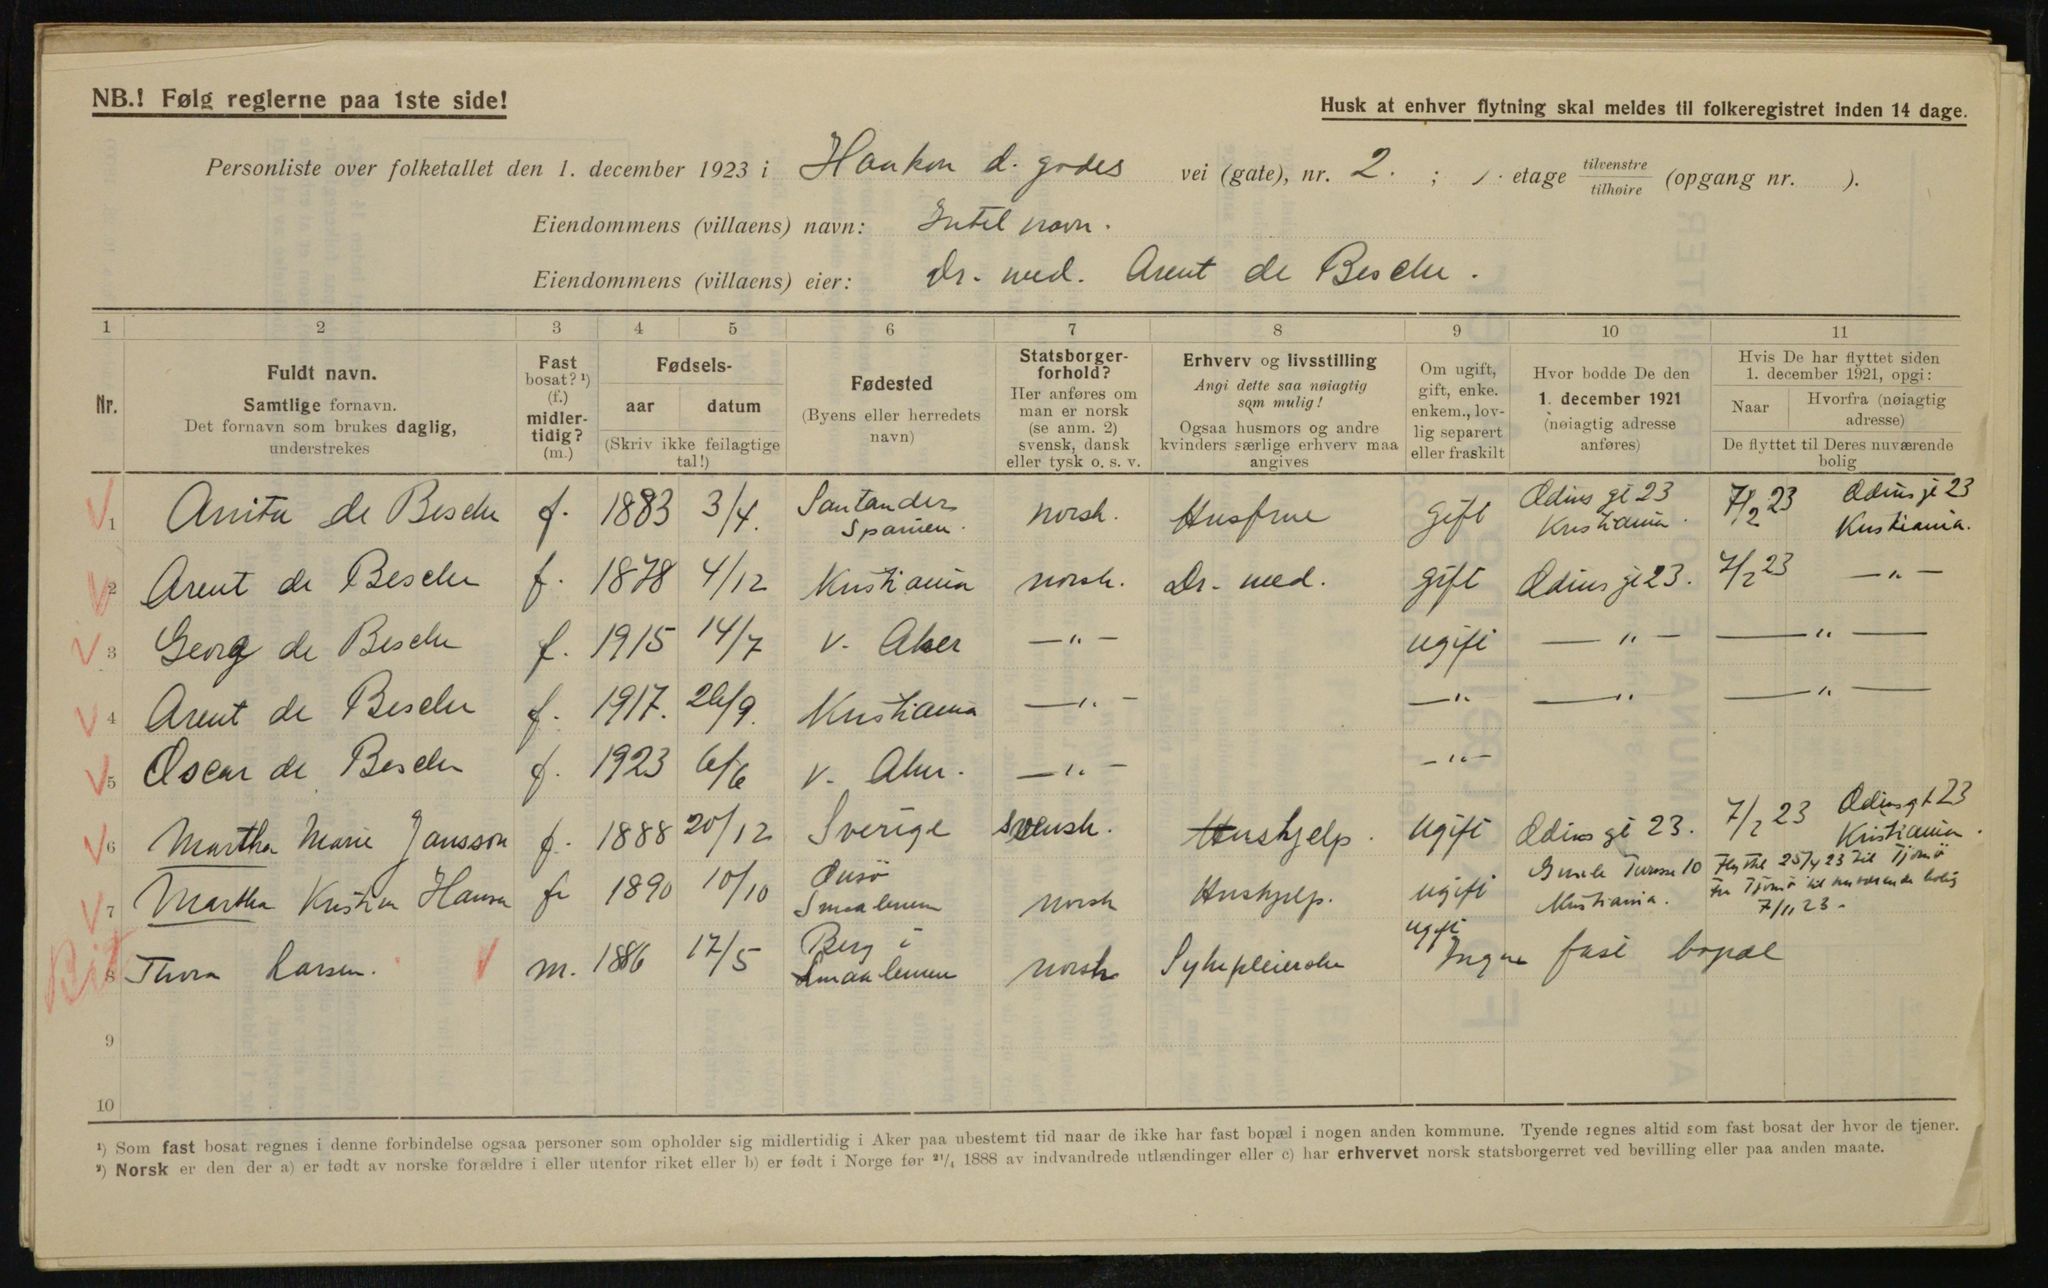 NB.! Følg reglerne paa 1ste side!
Husk at enhver flytning skal meldes til folkeregistret inden 14 dage.
Personliste over folketallet den 1. december 1923 i Haakon d. godes vei (gate), nr. 2. ; 1. etage tilvenstre tilhøire (opgang nr. ).
Eiendommens (villaens) navn: Intet navn.
Eiendommens (villaens) eier: Dr. med. Arent de Besche.
1 2 3 4 5 6 7 8 9 10 11
Nr.
Fuldt navn.
Samtlige fornavn.
Det fornavn som brukes daglig,
understrekes
Fast
bosat? ¹)
(f.)
midler-
tidig?
(m.)
Fødsels-
aar datum
(Skriv ikke feilagtige
tal!)
Fødested
(Byens eller herredets
navn)
Statsborger-
forhold?
Her anføres om
man er norsk
(se anm. 2)
svensk, dansk
eller tysk o. s. v.
Erhverv og livsstilling
Angi dette saa nøiagtig
som mulig!
Ogsaa husmors og andre
kvinders særlige erhverv maa
angives
Om ugift,
gift, enke.
enkem., lov-
lig separert
eller fraskilt
Hvor bodde De den
1. december 1921
(nøiagtig adresse
anføres)
Hvis De har flyttet siden
1. december 1921, opgi:
Naar Hvorfra (nøiagtig
adresse)
De flyttet til Deres nuværende
bolig
1 Anita de Besche f. 1883 3/4. Santander Spanien. norsk. Husfrue gift Odins gt 23 Kristiania. 7/2 23 Odins gt 23 Kristiania.
2 Arent de Besche f. 1878 4/12 Kristiania norsk. Dr. med. gift Odins gt 23. 7/2 23 — „ —
3 Georg de Besche f. 1915 14/7 V. Aker — „ — ugift — „ — — „ —
4 Arent de Besche f. 1917. 26/9. Kristiania — „ — — „ — — „ — — „ —
5 Oscar de Besche f. 1923 6/6 V. Aker. — „ — — „ —
6 Martha Marie Jansson f. 1888 20/12 Sverige svensk. Hushjelp. ugift Odins gt 23. 7/2 23 Odins gt 23 Kristiania.
7 Martha Kristine Hansen f. 1890 10/10 Onsö Smaalenene norsk Hushjelp. ugift 10 Kristiania. 25/4 23 til Tjømø fra Tjømø til nuværende bolig 7/11 23.
8 Thora Larsen. m. 1886 17/5 Berg i Smaalenene norsk Sykepleierske ugift Ingen fast bopæl
9
10
¹) Som fast bosat regnes i denne forbindelse ogsaa personer som opholder sig midlertidig i Aker paa ubestemt tid naar de ikke har fast bopæl i nogen anden kommune. Tyende regnes altid som fast bosat der hvor de tjener.
²) Norsk er den der a) er født av norske forældre i eller utenfor riket eller b) er født i Norge før ²¹/₄ 1888 av indvandrede utlændinger eller c) har erhvervet norsk statsborgerret ved bevilling eller paa anden maate.